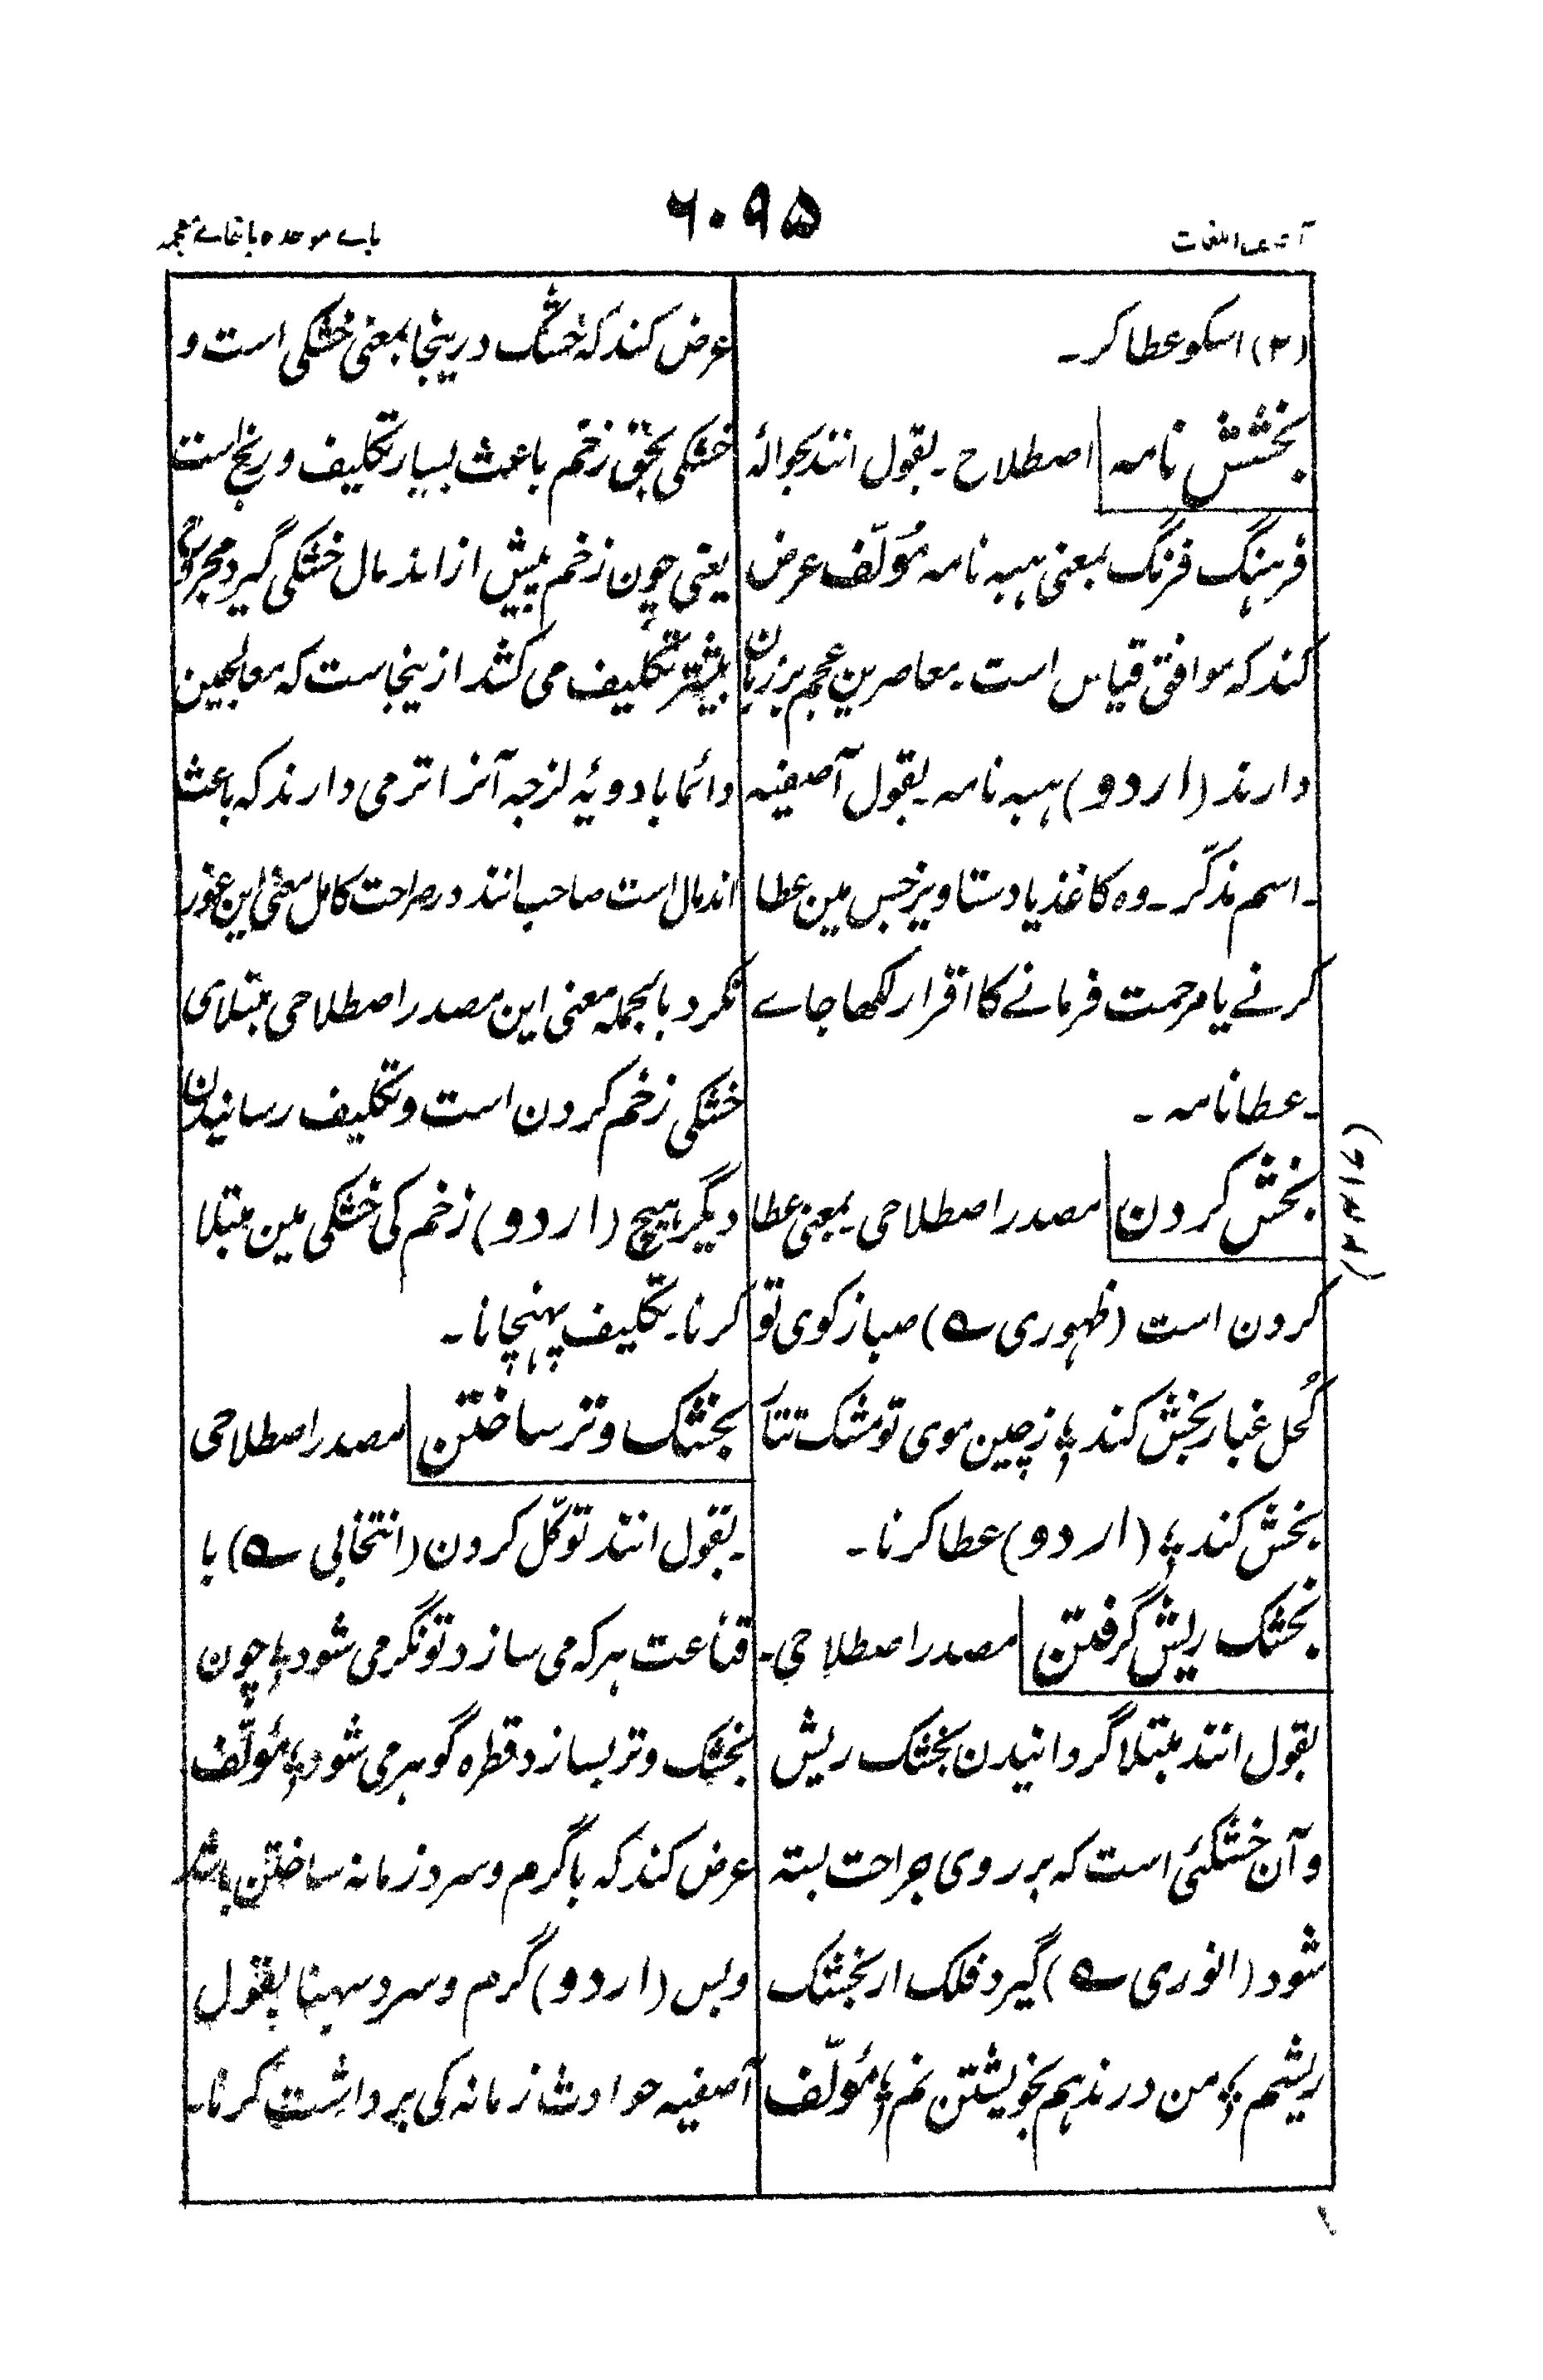 آصف اللغات
۶۰۹۵
باے موحدہ باخاے معجمہ
(۲) اسکو عطا کر۔
بخشش نامہ اصطلاح۔ بقول انند بحوالۂ
فرہنگ فرنگ بمعنی ہبہ نامہ مؤلّف عرض
کند کہ موافق قیاس است۔ معاصرین عجم بر زبان
دارند (اردو) ہبہ نامہ۔ بقول آصفیہ
۔ اسم مذکّر۔ وہ کاغذ یا دستاویز جس مین عطا
کرنے یا مرحمت فرمانے کا اقرار لکھا جاے
۔ عطا نامہ۔
بخش کردن مصدر اصطلاحی۔ بمعنی عطا
کردن است (ظہوری ؎) صبا ز کوی تو
کُحل غبار بخش کند ؛ ز چین موی تو مشک تتار
بخش کند ؛ (اردو) عطا کرنا۔
بخشک ریش گرفتن مصدر اصطلاحی۔
بقول انند مبتلا گردانیدن بخشک ریش
و آن خشکئی است کہ بر روی جراحت بستہ
شود (انوری ؎) گیرد فلک ار بخشک
ریشم ؛ من در ندہم بخویشتن نم ؛ مؤلّف
عرض کند کہ خشک درینجا بمعنی خشکی است و
خشکی بحق زخم باعث بسیار تکلیف و رنج است
یعنی چون زخم پیش از اندمال خشکی گیرد مجروح
بیشتر تکلیف می کشد ازینجاست کہ معالجین
دائما بادویۂ لزجہ آنرا تر می دارند کہ باعث
اندمال است صاحب انند در صراحت کامل معنی این غور
نکرد بالجملہ معنی این مصدر اصطلاحی مبتلای
خشکی زخم کردن است و تکلیف رسانیدن
دیگر ہیچ (اردو) زخم کی خشکی مین مبتلا
کرنا۔ تکلیف پہنچانا۔
بخشک و تر ساختن مصدر اصطلاحی
۔ بقول انند توکّل کردن (انتخابی ؎) با
قناعت ہر کہ می سازد تونگر می شود ؛ چون
بخشک و تر بسازد قطرہ گوہر می شود ؛ مؤلّف
عرض کند کہ با گرم و سرد زمانہ ساختن باشد
و بس (اردو) گرم و سرد سہنا بقول
آصفیہ حوادث زمانہ کی برداشت کرنا۔